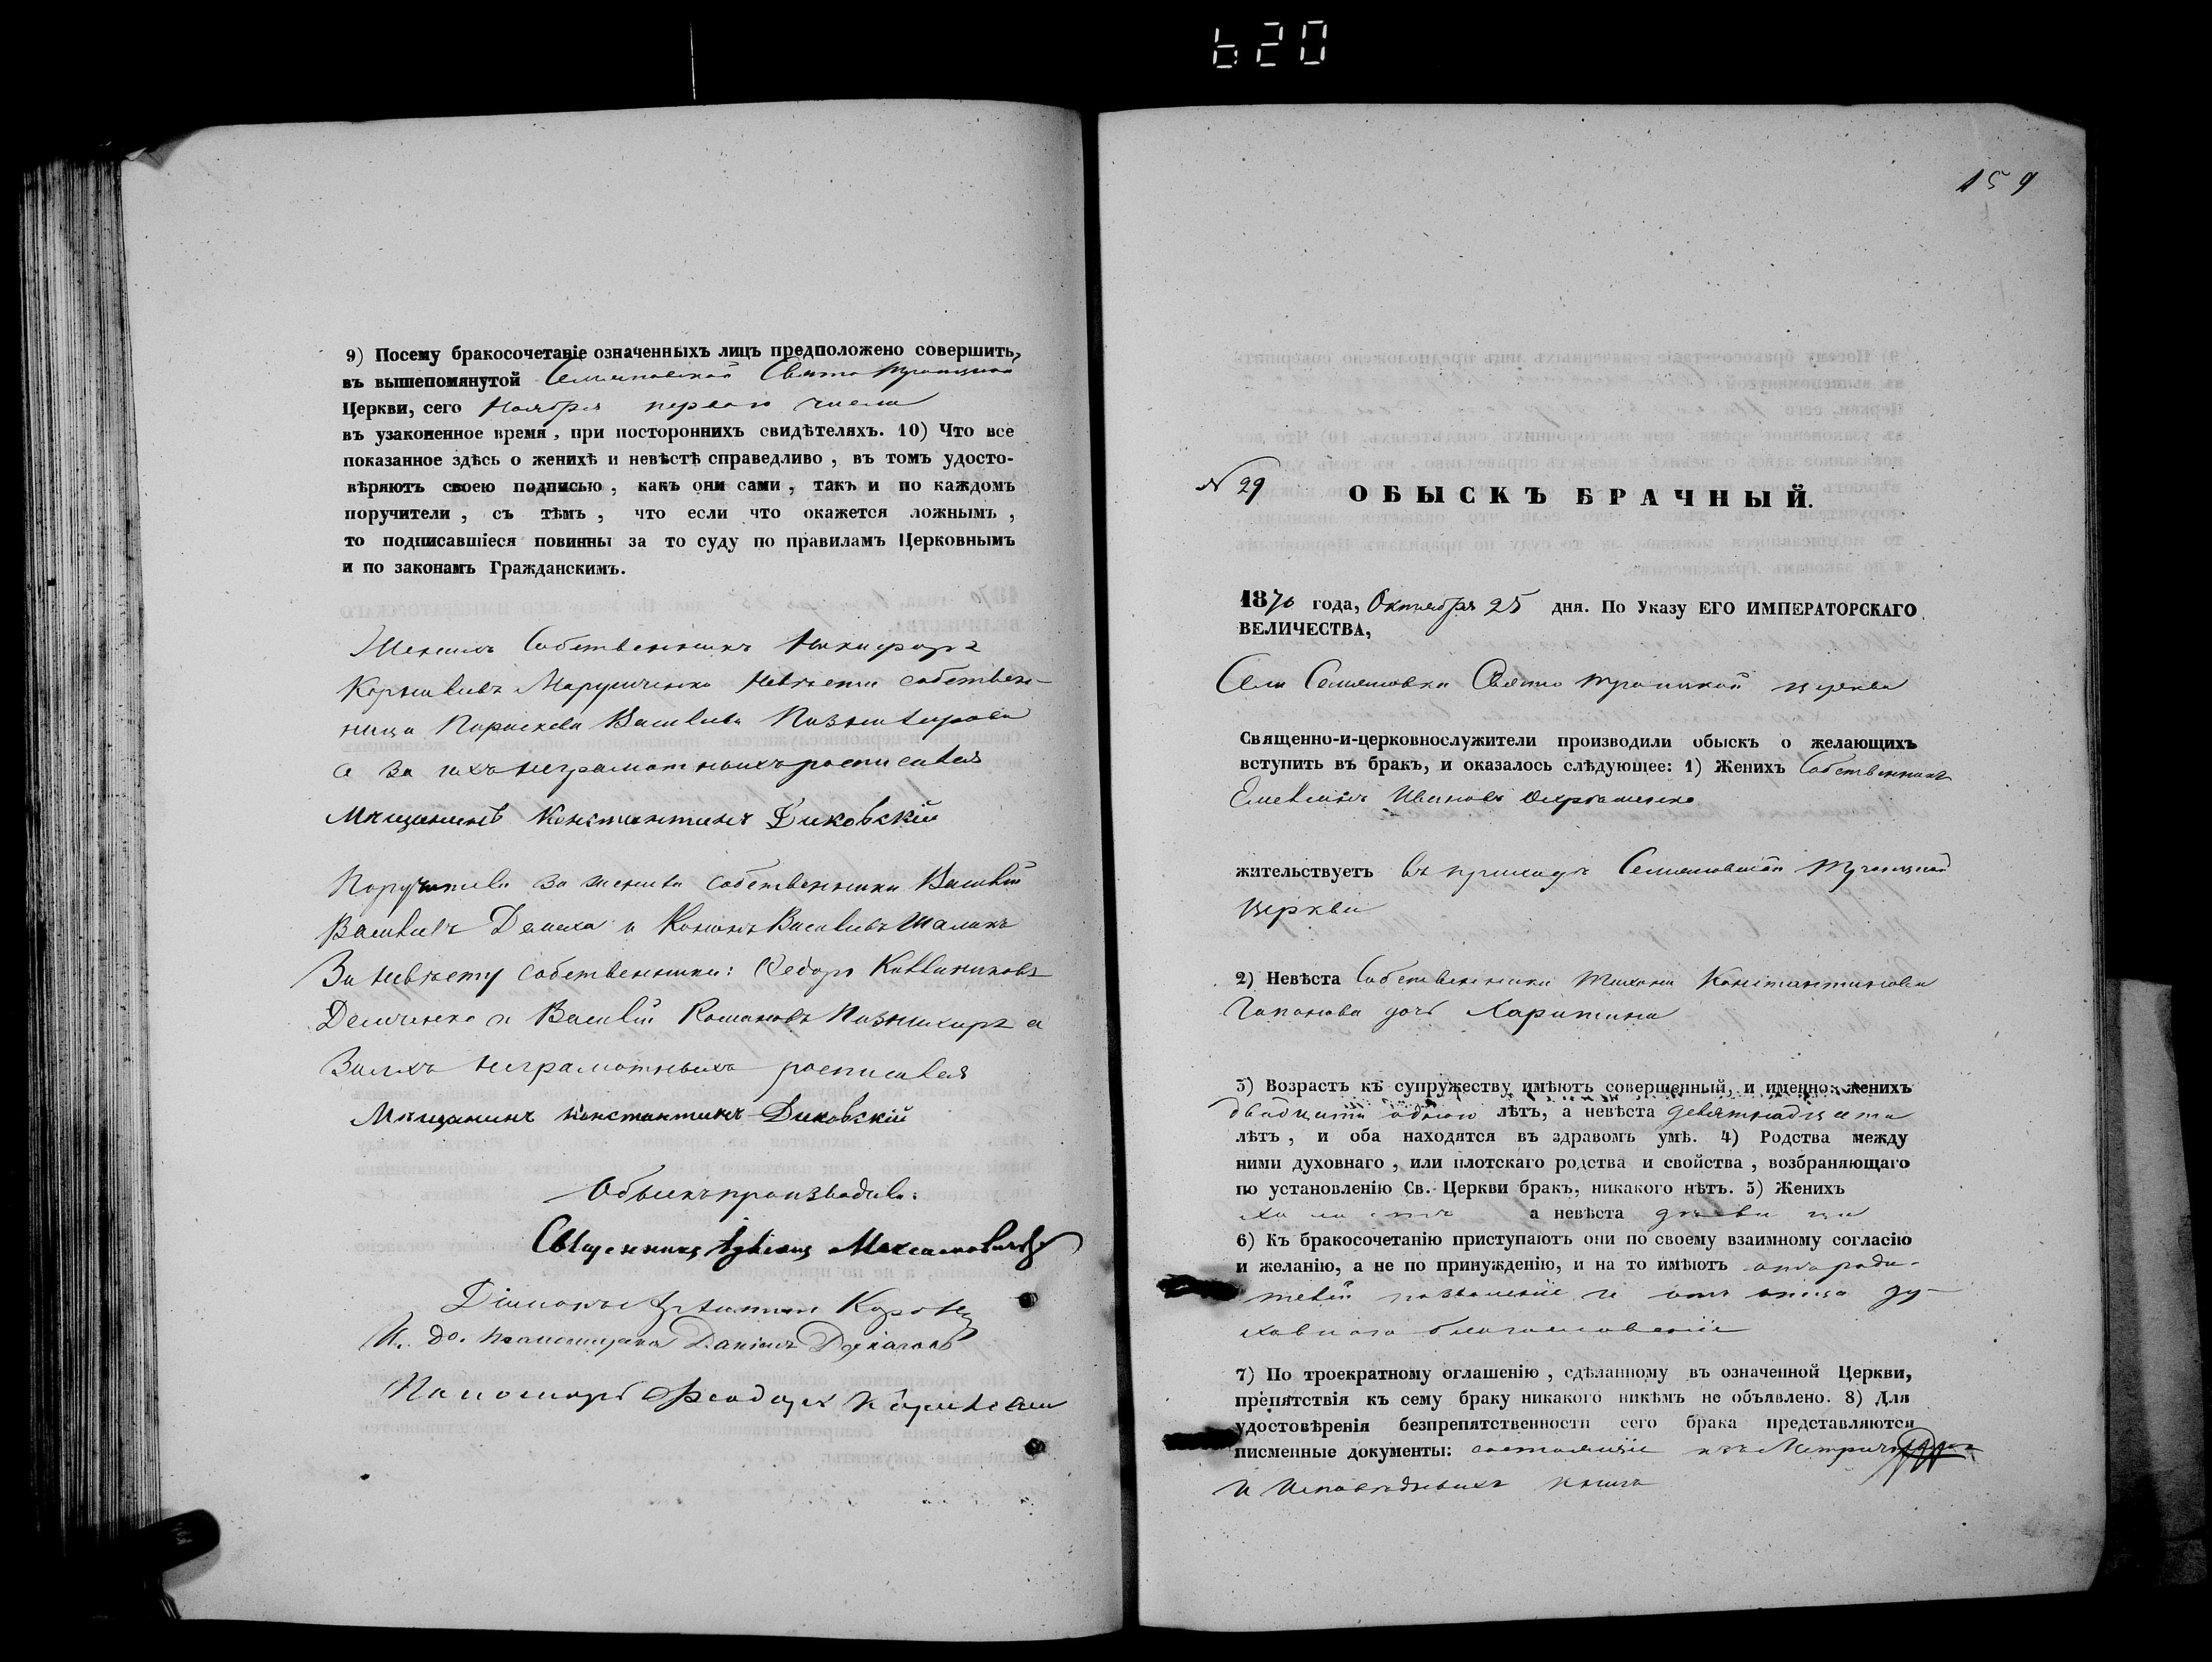 620
9) Посему бракосочетаніе означенныхъ лицъ предположено совершить,
въ вышепомянутой Семяновской Свято Троицкой
Церкви, сего Ноября первого числа
въ узаконенное время, при постороннихъ свидѣтеляхъ. 10) Что все
показанное здѣсь о женихѣ и невѣстѣ справедливо, въ томъ удосто-
вѣряютъ своею подписью, какъ они сами, такъ и по каждомъ
поручители, съ тѣмъ, что если что окажется ложнымъ,
то подписавшіеся повинны за то суду по правиламъ Церковнымъ
и по законамъ Гражданскимъ.
Женихъ Собственникъ Никифоръ
Марушченко Невѣста собствен-
ница Параскева Васильева
а за ихъ неграмотныхъ росписался
Мѣщанинъ Константинъ Диковскій
Поручители за жениха собственники Василій
Васильевъ Демеха и Кононъ Васильевъ Шаликъ
За невѣсту собственники: Федоръ Каллиниковъ
Демченко и Василій Романовъ Познихиръ а
За ихъ неграмотныхъ росписался
Мѣщанинъ Константинъ Диковскій
Обыскъ производили:
Священникъ Максимовичъ
Діаконъ
И. до. Даніилъ
Пономарь Феодоръ
159
№ 29
ОБЫСКЪ БРАЧНЫЙ.
1870 года, Октября 25 дня. По Указу ЕГО ИМПЕРАТОРСКАГО
ВЕЛИЧЕСТВА,
Села Семяновки Свято Троицкой церкви
Священно-и-церковнослужители производили обыскъ о желающихъ
вступить въ бракъ, и оказалось слѣдующее: 1) Женихъ Собственникъ
Емельянъ Ивановъ
жительствуетъ въ приходѣ Семяновской Троицкой
Церкви
2) Невѣста Собственника Тихона Константинова
Гапонова дочь Харитина
3) Возрастъ къ супружеству имѣютъ совершенный, и именно: женихъ
двадцати одного лѣтъ, а невѣста девятнадцати
лѣтъ, и оба находятся въ здравомъ умѣ. 4) Родства между
ними духовнаго, или плотскаго родства и свойства, возбраняющаго
по установленію Св. Церкви бракъ, никакого нѣтъ. 5) Женихъ
холостъ а невѣста дѣвица
6) Къ бракосочетанію приступаютъ они по своему взаимному согласію
и желанію, а не по принужденію, и на то имѣютъ отъ роди-
телей позволеніе и отъ отца ду-
ховнаго благословеніе
7) По троекратному оглашенію, сдѣланному въ означенной Церкви,
препятствія къ сему браку никакого никѣмъ не объявлено. 8) Для
удостовѣренія безпрепятственности сего брака представляются
писменные документы: состоящіе изъ
и Исповѣдныхъ книгъ